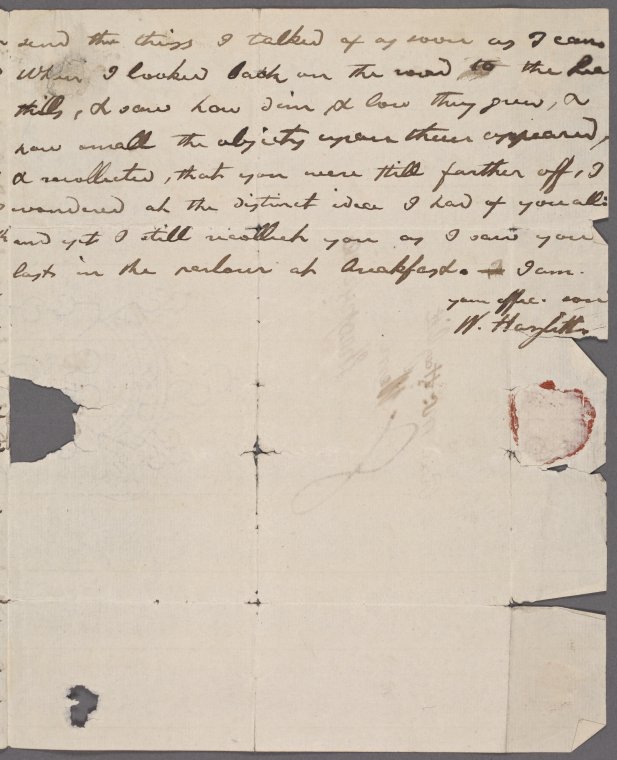 send the things I talked of as soon as I can.
When I looked back on the road to the
hills, & saw how dim & low they grew, &
how small the objects upon them appeared,
& recollected, that you were still farther off, I
wondered at the distinct idea I had of you all:
and yet I still recollect you as I saw you
last in the parlour at breakfast. I am.
your affec. son
W. Hazlitt.